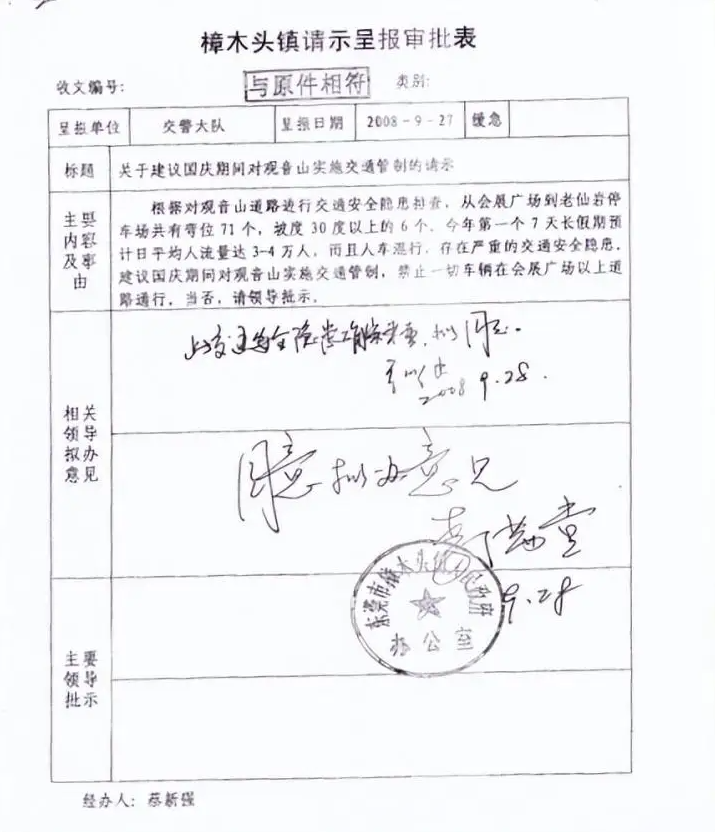 樟木头镇请示呈报审批表
收文编号: 与原件相符 类别:
呈报单位 交警大队 呈报日期 2008-9-27 缓急
标题 关于建议国庆期间对观音山实施交通管制的请示
主要内容及事由
根据对观音山道路进行交通安全隐患排查，从会展广场到老仙岩停
车场共有弯位71个，坡度30度以上的6个，今年第一个7天长假期预
计日平均人流量达3-4万人，而且人车混行，存在严重的交通安全隐患，
建议国庆期间对观音山实施交通管制，禁止一切车辆在会展广场以上道
路通行。当否，请领导批示。
拟同意。
2008 9.28.
相关领导拟办意见
同意拟办意见
9.28
东莞市樟木头镇人民政府
办公室
主要领导批示
经办人: 蔡新强